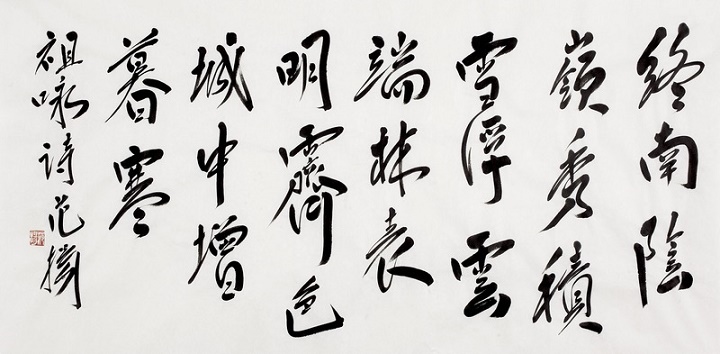 終南陰
嶺秀積
雪浮雲
端林表
明霽色
城中增
暮寒
祖咏詩范